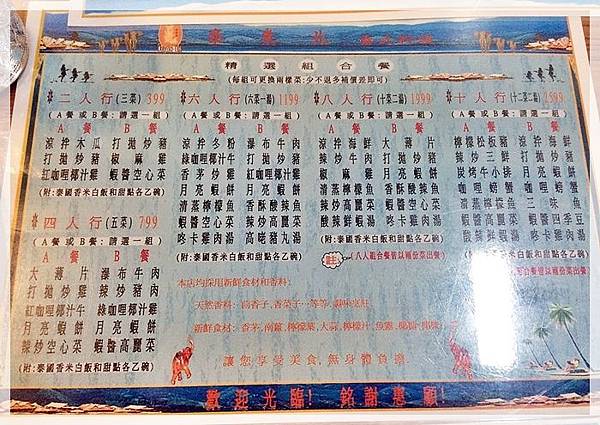 精選組合餐
(每組可更換兩樣菜:少不退多補價差即可)
二人行(三菜)399
(A餐或B餐:請選一組)
A餐 B餐
涼拌木瓜 打拋炒豬
打拋炒豬 椒麻雞
紅咖哩椰汁雞 蝦醬空心菜
(附:泰國香米白飯和甜點各乙碗)
四人行(五菜)799
(A餐或B餐:請選一組)
A餐 B餐
大薄片 瀑布牛肉
打拋炒雞 辣炒豬肉
紅咖哩椰汁牛 綠咖哩椰汁雞
月亮蝦餅 月亮蝦餅
辣炒空心菜 蝦醬高麗菜
(附:泰國香米白飯和甜點各乙碗)
六人行(六菜一湯)1199
(A餐或B餐:請選一組)
A餐 B餐
涼拌冬粉 瀑布牛肉
綠咖哩椰汁牛 打拋炒豬
香茅炒雞 椒麻雞
月亮蝦餅 月亮蝦餅
清蒸檸檬魚 香酥酸辣魚
蝦醬空心菜 辣炒高麗菜
咚卡雞肉湯 高姥豬丸湯
(附:泰國香米白飯和甜點各乙碗)
八人行(十菜二湯)1999
(A餐或B餐:請選一組)
A餐 B餐
涼拌海鮮 大薄片
辣炒牛肉 打拋炒豬
紅咖哩椰汁雞 綠咖哩椰汁雞
月亮蝦餅 月亮蝦餅
清蒸檸檬魚 香酥酸辣魚
蝦醬空心菜 辣炒高麗菜
酸辣鮮蝦湯 咚卡雞肉湯
(附:泰國香米白飯和甜點各乙碗)
註:(八人組合餐皆以兩份菜出餐)
十人行(十二菜二湯)2599
(A餐或B餐:請選一組)
A餐 B餐
檸檬松板豬 涼拌海鮮
辣炒三鮮 打拋炒豬
炭烤牛小排 咖哩蝦
咖哩螃蟹 咖哩螃蟹
月亮蝦餅 月亮蝦餅
清蒸檸檬魚 三味魚
蝦醬高麗菜 蝦醬四季豆
酸辣海鮮湯 咚卡雞肉湯
(附:泰國香米白飯和甜點各乙碗)
本店均採用新鮮食材和香料:
讓您享受美食,無身體負擔.
歡迎光臨! 銘謝惠顧!